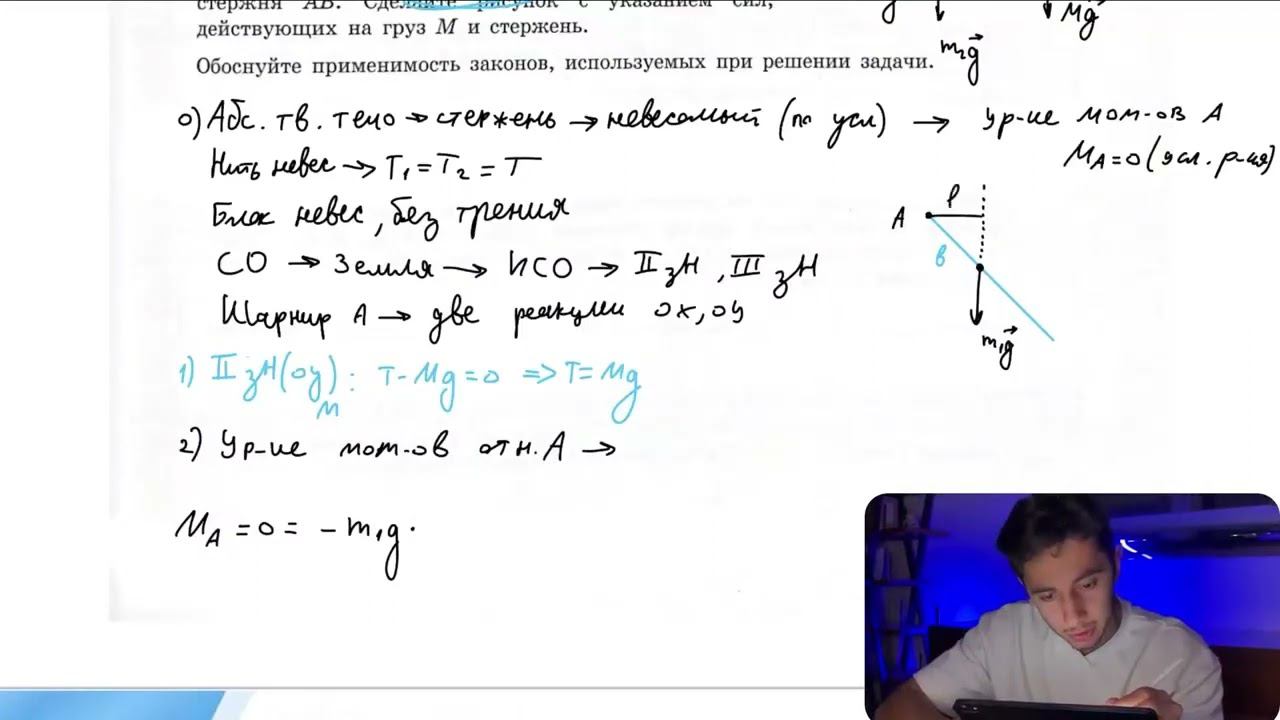 стержня AB. Сделайте рисунок с указанием сил,
действующих на груз M и стержень.
Обоснуйте применимость законов, используемых при решении задачи.
g
Mg
m₂g
0) Абс. тв. тело → стержень → невесомый (по усл) → Ур-ие мом-ов A
M_A = 0 (усл. р-ия)
Нить невес → T₁ = T₂ = T
Блок невес, без трения
СО → Земля → ИСО → II зН, III зН
Шарнир A → две реакции ox, oy
A
l
b
m₁g
1) II зН (oy)_M : T - Mg = 0 => T = Mg
2) Ур-ие мом-ов отн. A →
M_A = 0 = - m₁g ·